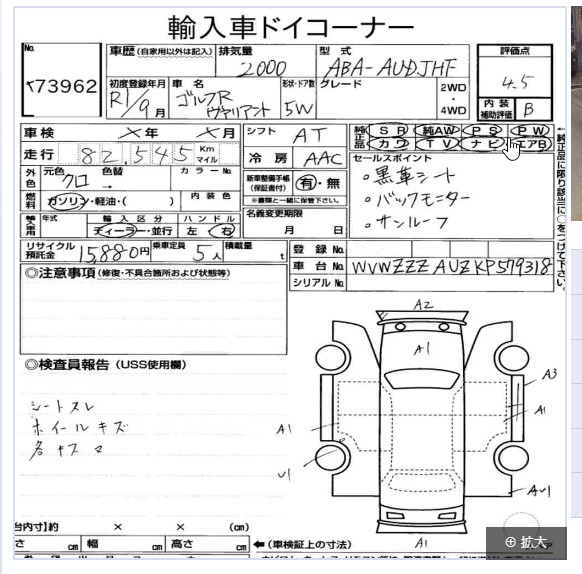 輸入車ドイコーナー
No.
73962
車歴 (自家用以外は記入)
排気量
2000
型式
ABA-AUDJHF
評価点
4.5
初度登録年月
R1/9月
車名
ゴルフR
ヴァリアント
形状・ドア数
5W
グレード
2WD
・
4WD
内装
補助評価
B
車検
×年 ×月
シフト
AT
純正品
SR 純AW PS PW
カワ TV ナビ エアB
走行
82,545
Km
マイル
冷房
AAC
セールスポイント
。黒革シート
。バックモニター
。サンルーフ
外色
元色
クロ
色替
→
カラーNo.
新車整備手帳
(保証書付)
有・無
※書類と一緒に保管下さい。
燃料
ガソリン・軽油・( )
内装色
名義変更期限
月 日
輸入車用
年式
輸入区分
ディーラー・並行
ハンドル
左 右
リサイクル
預託金
15,880円
乗車定員
5人
積載量
t
登録No.
車台No.
WVWZZZAUZKP579318
シリアルNo.
◎注意事項 (修復・不具合箇所および状態等)
◎検査員報告 (USS使用欄)
シートスレ
ホイールキズ
各キズ
A2
A1
A3
A1
A1
U1
A1
台内寸】約 × × (cm)
さ cm 幅 cm 高さ cm
(車検証上の寸法)
拡大